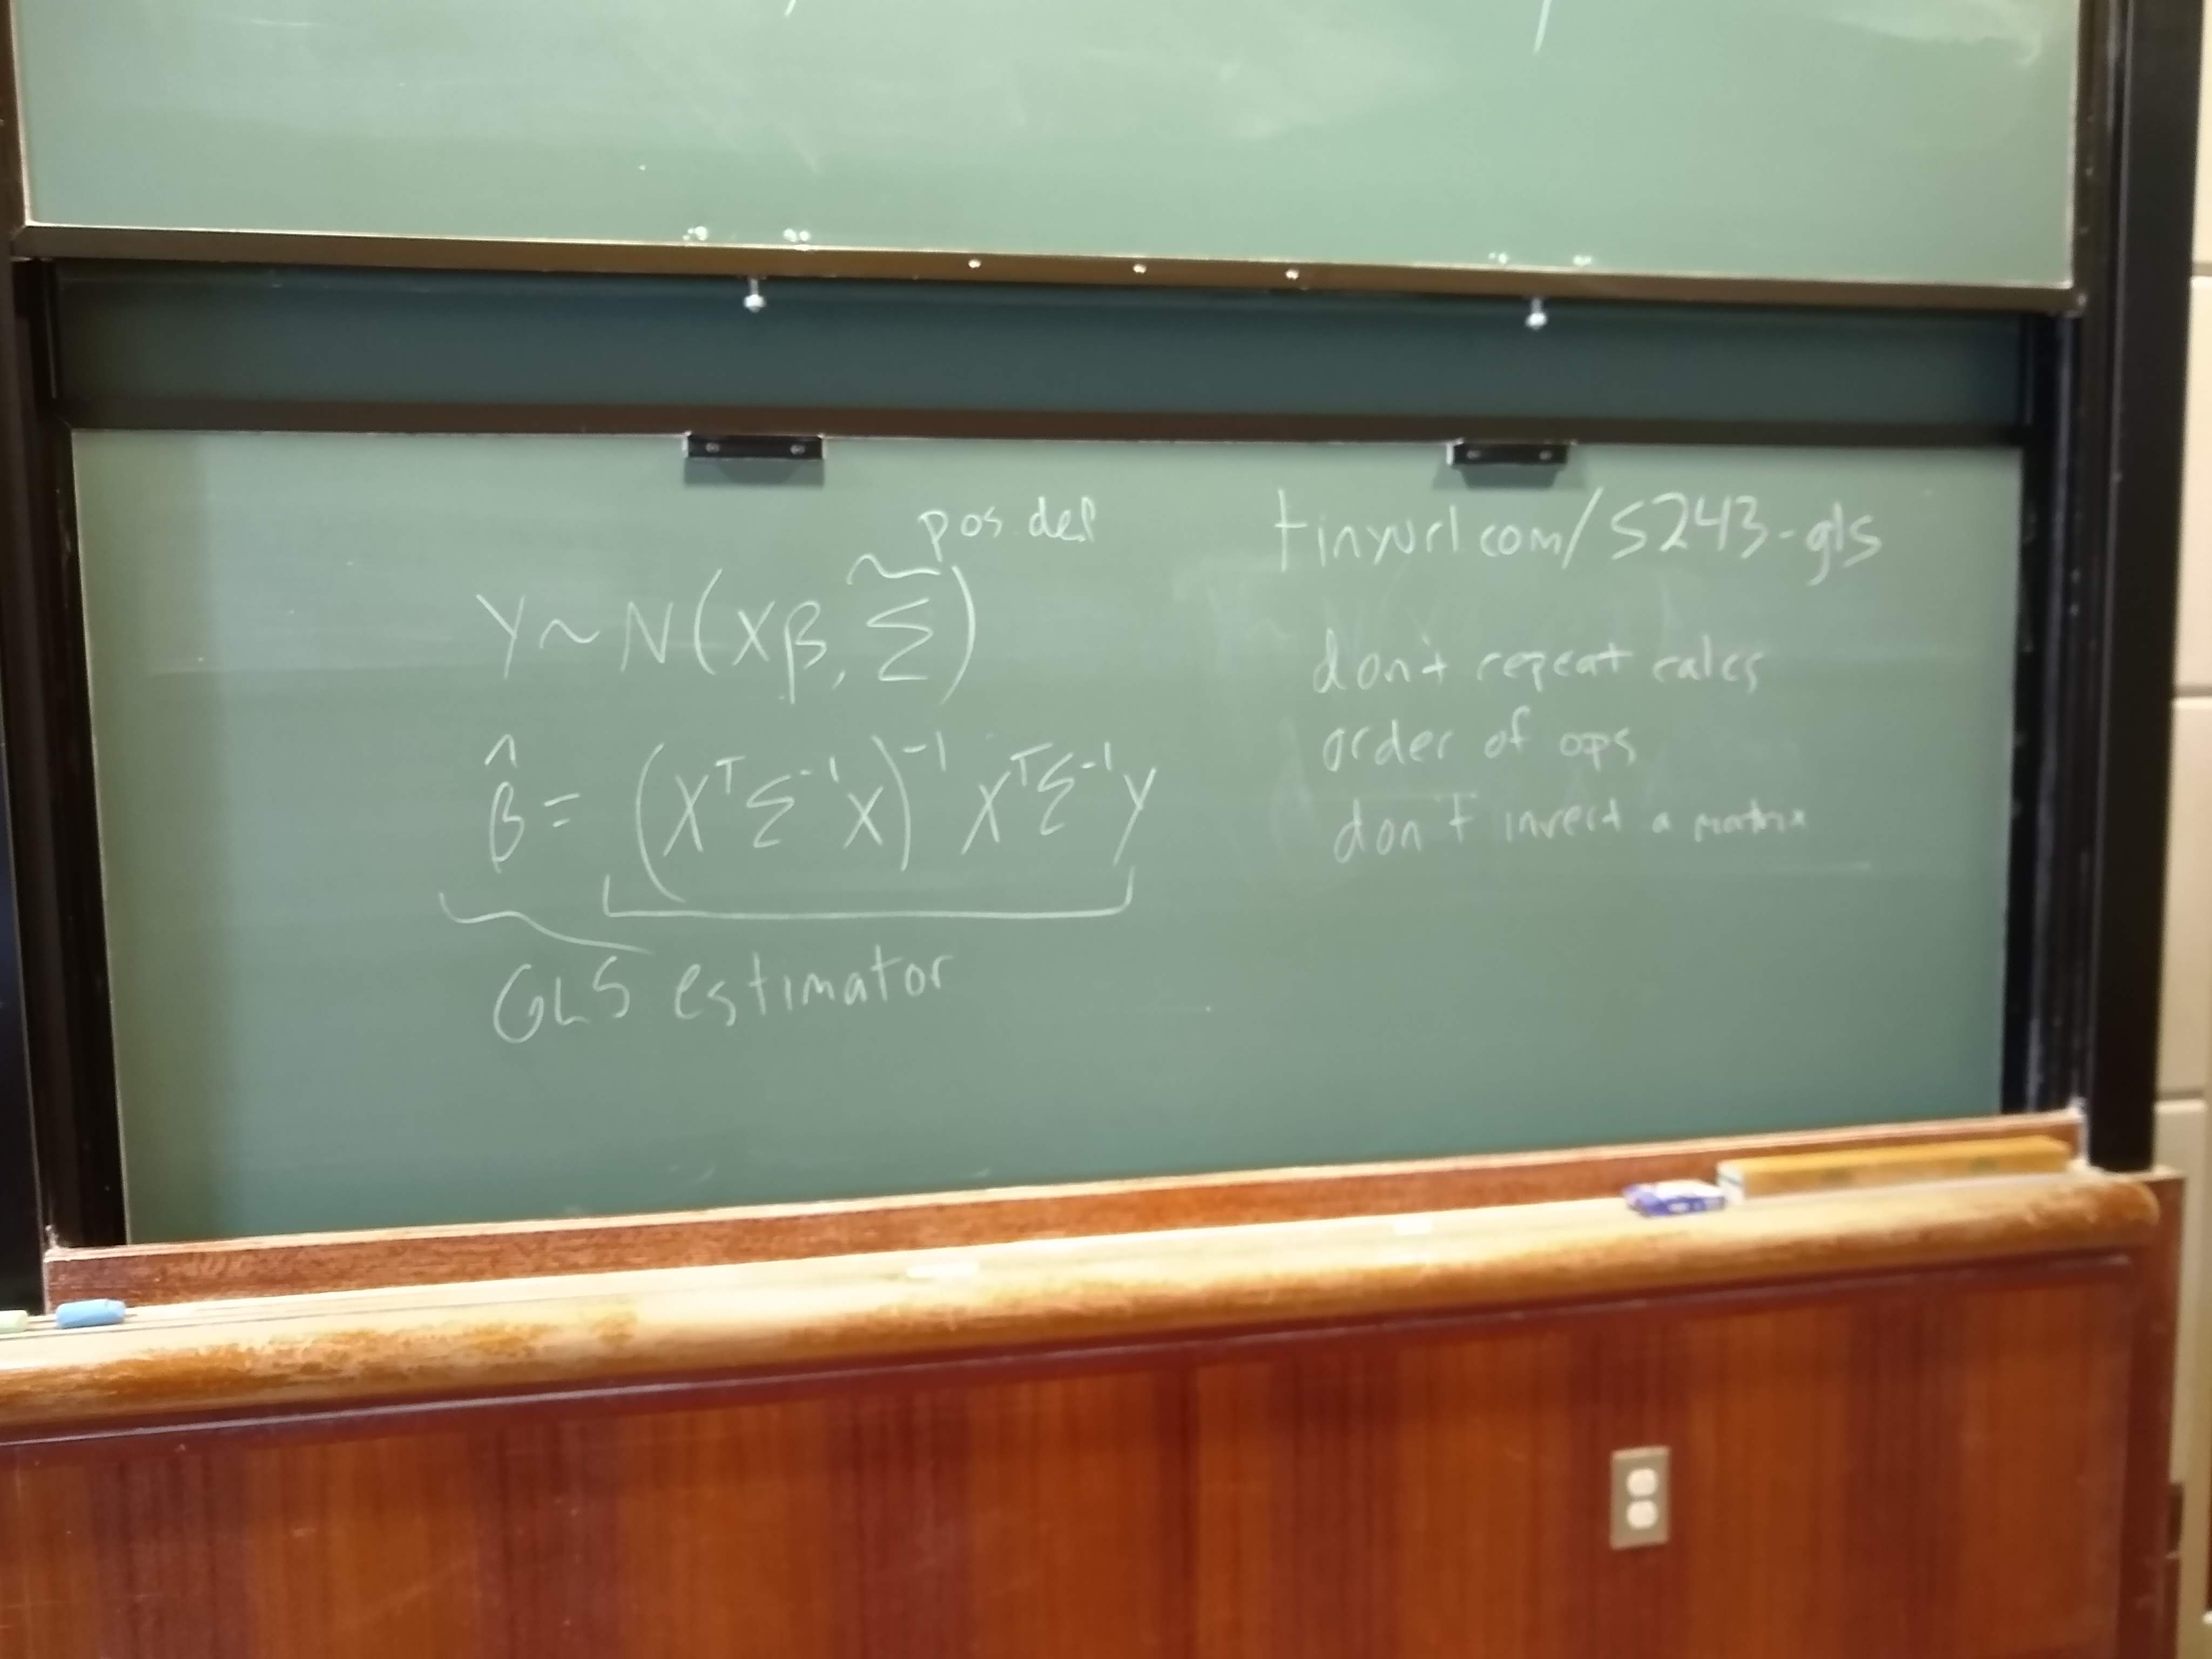 pos. def
Y ~ N(Xβ, Σ)
β̂ = (XᵀΣ⁻¹X)⁻¹ XᵀΣ⁻¹y
GLS estimator
tinyurl.com/5243-gls
don't repeat calcs
order of ops
don't invert a matrix